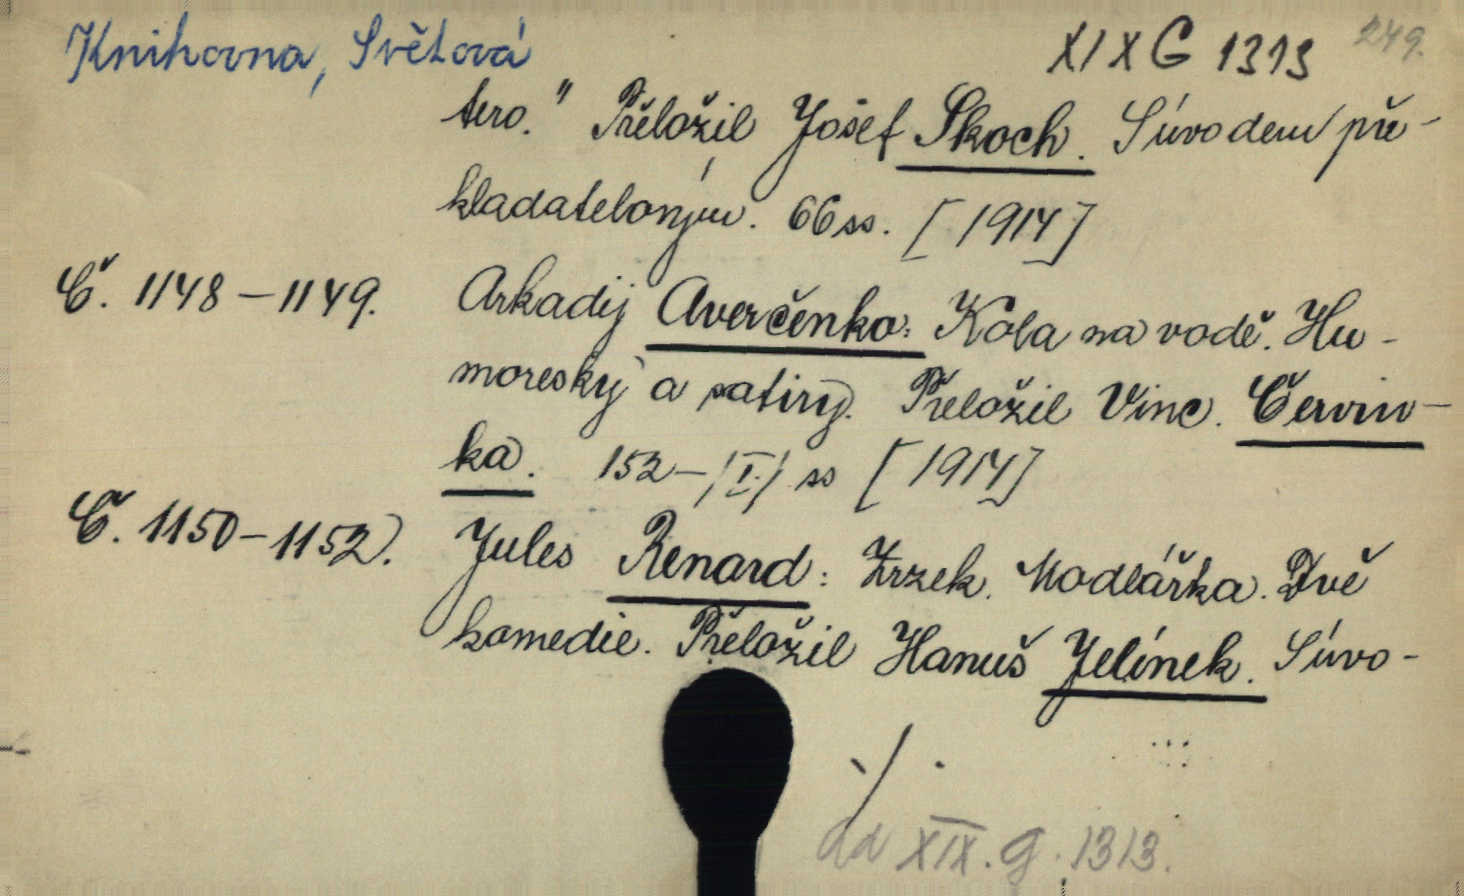 Knihovna, Světová XIX G 1313 249.
tero." Přeložil Josef Skoch. S úvodem pře-
kladatelovým. 66 ss. [1914]
Č. 1148-1149. Arkadij Averčenko: Kola na vodě. Hu-
moresky a satiry. Přeložil Vinc. Červin-
ka. 152-/I/ ss [1914]
Č. 1150-1152. Jules Renard: Zrzek. Modlářka. Dvě
komedie. Přeložil Hanuš Jelínek. S úvo-
ad XIX. G. 1313.